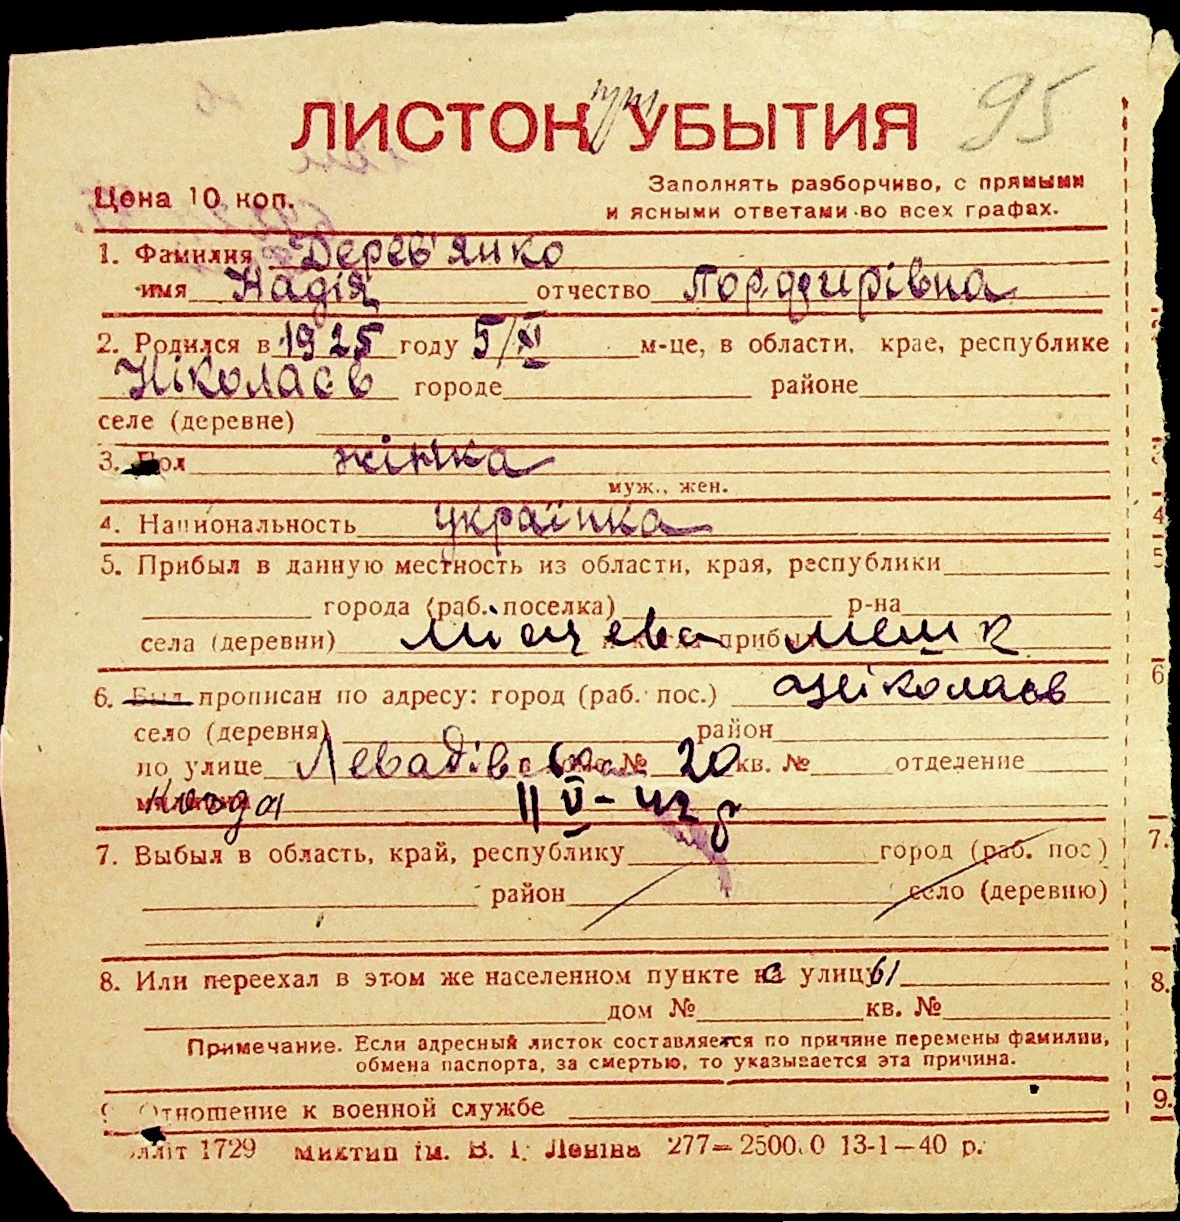 ЛИСТОК при УБЫТИЯ 95
Цена 10 коп.
Заполнять разборчиво, с прямыми
и ясными ответами во всех графах.
1. Фамилия Дерев'янко
имя Надія отчество Порфирівна
2. Родился в 1925 году 5/XI м-це, в области, крае, республике
Ніколаєв городе районе
селе (деревне)
3. Пол жінка
муж., жен.
4. Национальность українка
5. Прибыл в данную местность из области, края, республики
города (раб. поселка) р-на
села (деревни) Місцева прибы мешк
6. Был прописан по адресу: город (раб. пос.) Ніколаєв
село (деревня) район
по улице Левадівська № 20 кв. № отделение
когда 11 V - 42 р
7. Выбыл в область, край, республику город (раб. пос.)
район село (деревню)
8. Или переехал в этом же населенном пункте с улицы
дом № кв. №
Примечание. Если адресный листок составляется по причине перемены фамилии,
обмена паспорта, за смертью, то указывается эта причина.
9. Отношение к военной службе
літ 1729 Миктип ім. В. І. Леніна 277—2500.0 13-1—40 р.
4
5
6
7.
8.
9.